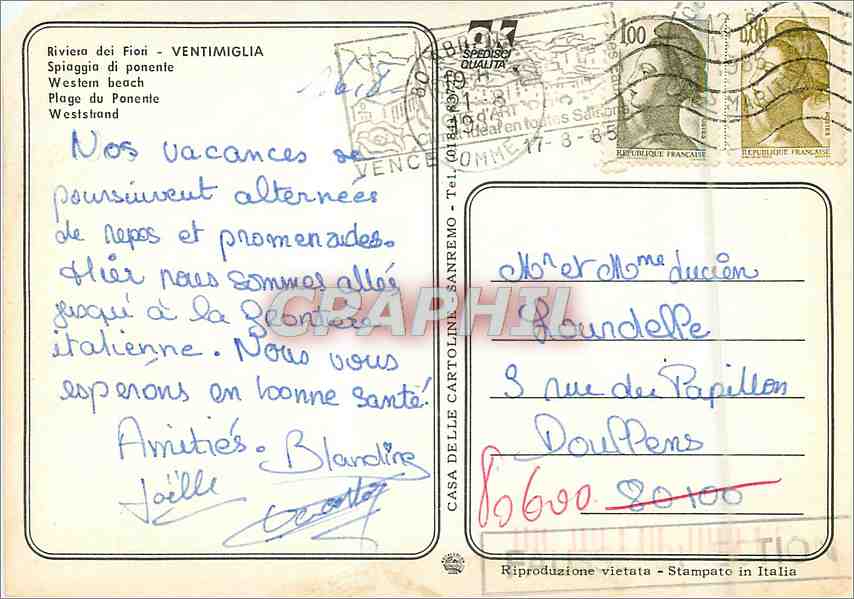 Riviera dei Fiori - VENTIMIGLIA
Spiaggia di ponente
Western beach
Plage du Ponente
Weststrand
16.8
Nos vacances se
poursuivent alternées
de repos et promenades.
Hier nous sommes allés
jusqu'à la frontière
italienne. Nous vous
espérons en bonne santé!
Amitiés. Blandine
Joëlle
SPEDISCI
QUALITA'
80 ABB
1-8
D'ART
Climat idéal en toutes Saisons
VENCE
SOMME
17-8-85
1,00
0,80
REPUBLIQUE FRANÇAISE
REPUBLIQUE FRANÇAISE
CASA DELLE CARTOLINE SANREMO - Tel. (0184)
CPAPHIL
Mr et Mme Lucien
Lourdelle
3 rue du Papillon
Doullens
80600 80100
TION
Riproduzione vietata - Stampato in Italia